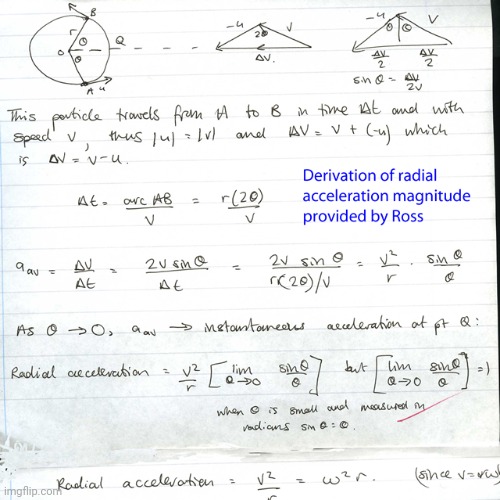 B
r
θ
O
θ
Q
A u
-u
2θ
V
ΔV
-u
V
θ θ
ΔV/2 ΔV/2
sin θ = ΔV/2V
This particle travels from A to B in time Δt and with
speed V, thus |u| = |v| and ΔV = V + (-u) which
is ΔV = V - u.
Δt = arc AB/V = r(2θ)/V
Derivation of radial
acceleration magnitude
provided by Ross
a av = ΔV/Δt = 2V sin θ/Δt = 2V sin θ/r(2θ)/V = V²/r . sin θ/θ
As θ → 0, a av → instantaneous acceleration at pt Q:
Radial acceleration = V²/r [lim θ→0 sin θ/θ] but [lim θ→0 sin θ/θ] = 1
when θ is small and measured in
radians sin θ = θ.
Radial acceleration = V²/r = ω²r. (since v = rω)
imgflip.com